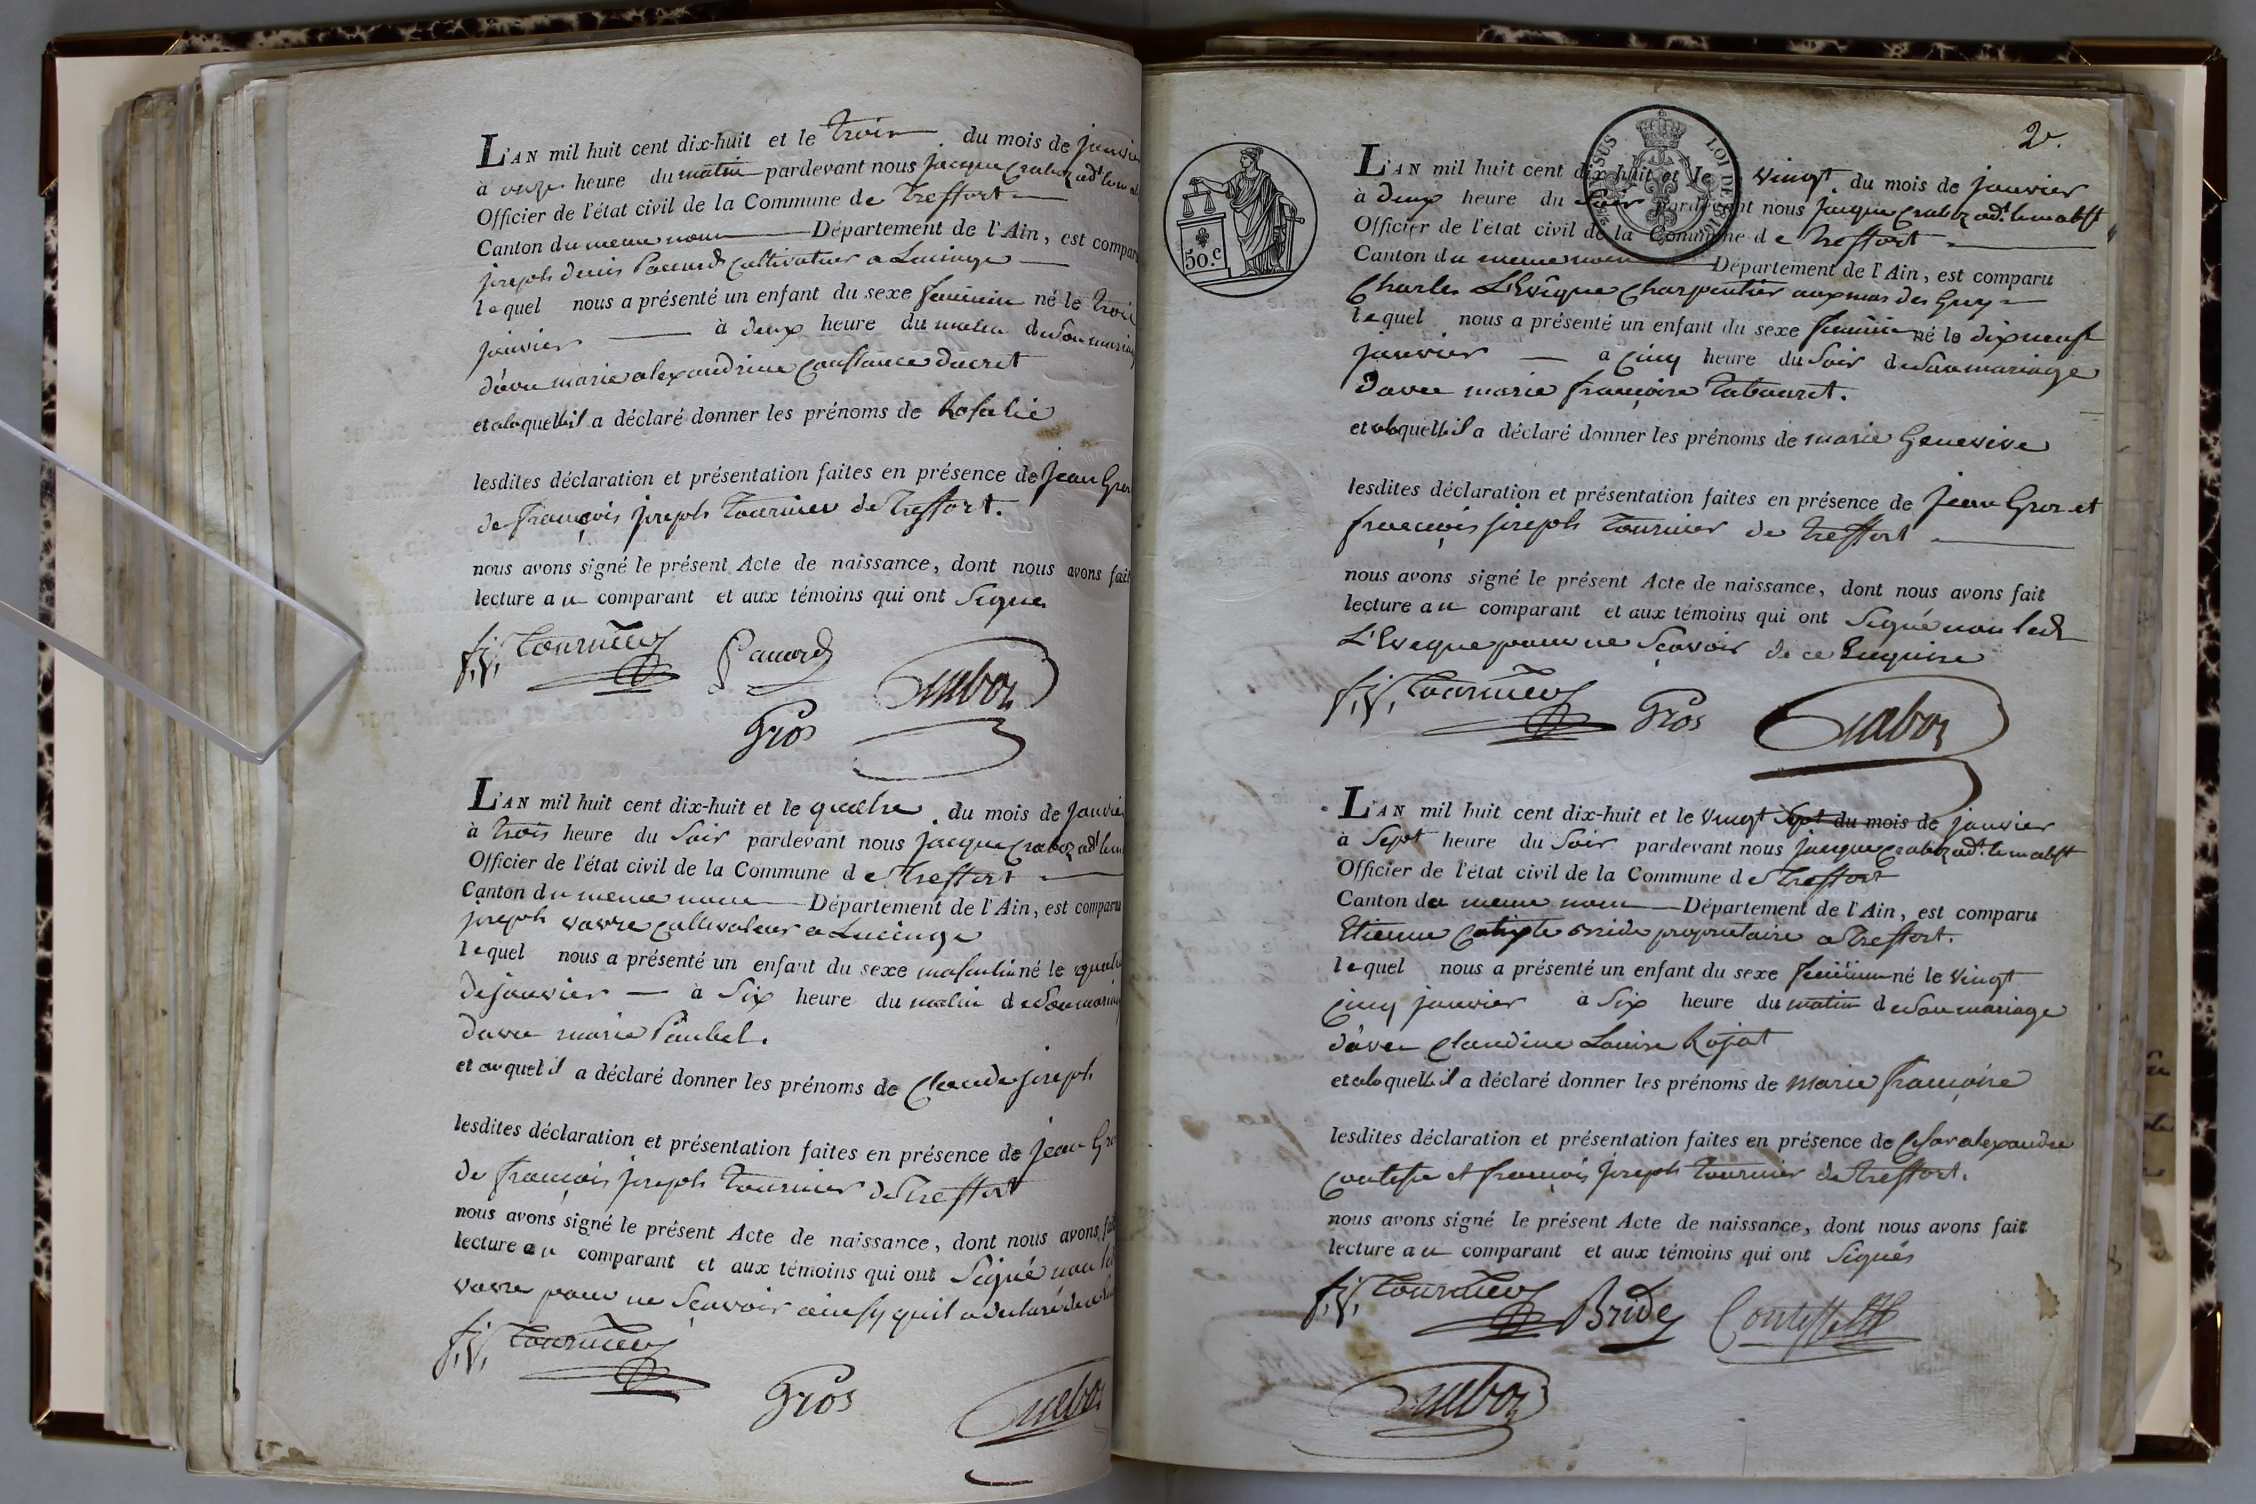 L'AN mil huit cent dix-huit et le trois du mois de janvier
à onze heure du matin pardevant nous jacque Craboz adt
Officier de l'état civil de la Commune de treffort
Canton du meme nom Département de l'Ain, est compar
joseph denis Pacard cultivateur a Lucinge
lequel nous a présenté un enfant du sexe feminin né le trois
janvier à deux heure du matin de Son mariag
d'avec marie alexandrine constance ducret
et a laquelle il a déclaré donner les prénoms de Rosalie
lesdites déclaration et présentation faites en présence de jean Gros
de françois joseph tournier de treffort.
nous avons signé le présent Acte de naissance, dont nous avons fait
lecture au comparant et aux témoins qui ont Signes
f, j, tournier Pacard
Gros Craboz
L'AN mil huit cent dix-huit et le quatre du mois de janvier
à trois heure du Soir pardevant nous jacque Craboz adt
Officier de l'état civil de la Commune de treffort
Canton du meme nom Département de l'Ain, est comparu
joseph vavre cultivateur a Lucinge
lequel nous a présenté un enfant du sexe masculin né le quatre
de janvier à Six heure du matin de Son mariag
davec marie Paubel.
et auquel il a déclaré donner les prénoms de Claude joseph
lesdites déclaration et présentation faites en présence de jean Gro
de françois joseph tournier de treffort
nous avons signé le présent Acte de naissance, dont nous avons fait
lecture au comparant et aux témoins qui ont Signé non led
vavre pour ne Sçavoir ainsy quil a declaré de ce
f, j, tournier
Gros Craboz
2e.
TIMBRE LOI DE 1816
50.c
L'AN mil huit cent dix-huit et le vingt du mois de janvier
à deux heure du Soir pardevant nous jacque Craboz adt. le m abst
Officier de l'état civil de la Commune de treffort
Canton du meme nom Département de l'Ain, est comparu
Charles L'Evêque Charpentier aux mas des Guy
lequel nous a présenté un enfant du sexe feminin né le dix neuf
janvier à cinq heure du Soir de Son mariage
davec marie françoise tabouret.
et a laquelle il a déclaré donner les prénoms de marie Genevive
lesdites déclaration et présentation faites en présence de jean Gros et
françois joseph tournier de treffort
nous avons signé le présent Acte de naissance, dont nous avons fait
lecture au comparant et aux témoins qui ont Signé non led
L'Eveque pour ne Sçavoir de ce Enquire
f, j, tournier Gros Craboz
L'AN mil huit cent dix-huit et le vingt Sept du mois de janvier
à Sept heure du Soir pardevant nous jacque Craboz adt. le m abst
Officier de l'état civil de la Commune de treffort
Canton du meme nom Département de l'Ain, est comparu
Etienne Calixte Bride proprietaire a treffort.
lequel nous a présenté un enfant du sexe feminin né le vingt
cinq janvier à Six heure du matin de Son mariage
d'avec Claudine Louise Rojat
et a laquelle il a déclaré donner les prénoms de marie françoise
lesdites déclaration et présentation faites en présence de Cesar alexandre
Contesse et françois joseph tournier de treffort.
nous avons signé le présent Acte de naissance, dont nous avons fait
lecture au comparant et aux témoins qui ont Signés
f, j, tournier Bride Contesse
Craboz